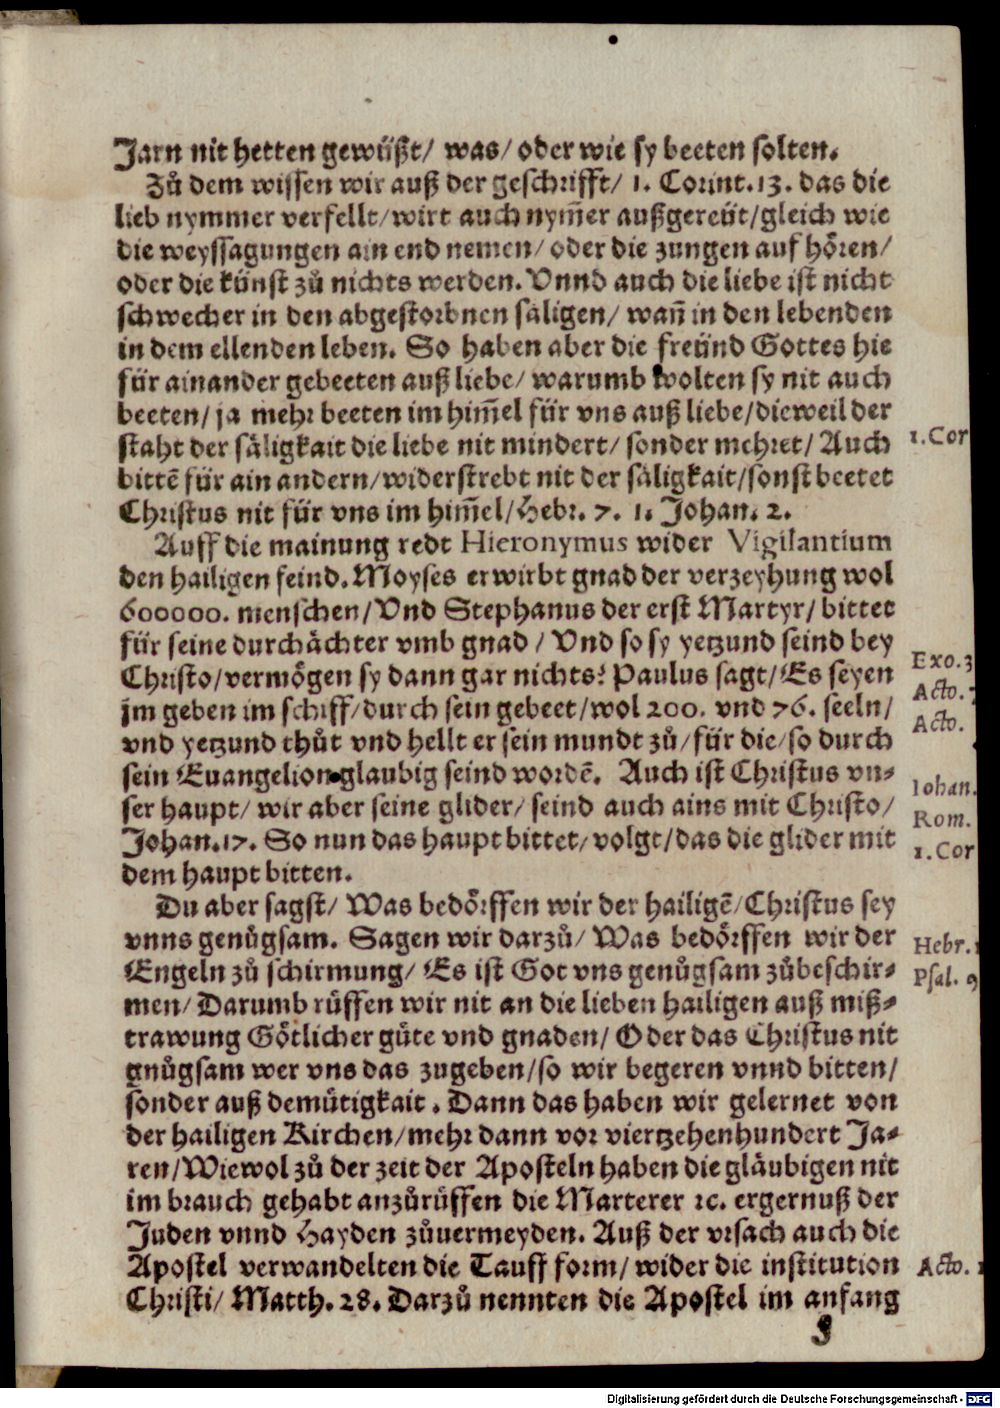 Jarn nit hetten gewüßt/ was/ oder wie sy beeten solten.
Zů dem wissen wir auß der geschrifft/ 1. Corint. 13. das die
lieb nymmer verfellt/ wirt auch nym̃er außgereüt/ gleich wie
die weyssagungen ain end nemen/ oder die zungen auf hören/
oder die künst zů nichts werden. Vnnd auch die liebe ist nicht
schwecher in den abgestorbnen säligen/ wañ in den lebenden
in dem ellenden leben. So haben aber die freünd Gottes hie
für ainander gebeeten auß liebe/ warumb wolten sy nit auch
beeten/ ja mehr beeten im him̃el für vns auß liebe/ dieweil der
staht der säligkait die liebe nit mindert/ sonder mehret/ Auch
1.Cor
bittẽ für ain andern/ widerstrebt nit der säligkait/ sonst beetet
Christus nit für vns im him̃el/ Hebr. 7. 1. Johan. 2.
Auff die mainung redt Hieronymus wider Vigilantium
den hailigen feind. Moyses erwirbt gnad der verzeyhung wol
600000. menschen/ Vnd Stephanus der erst Martyr/ bittet
für seine durchächter vmb gnad / Vnd so sy yetzund seind bey
Christo/ vermögen sy dann gar nichts? Paulus sagt/ Es seyen
Exo.3
jm geben im schiff/ durch sein gebeet/ wol 200. vnd 76. seeln/
Acto.7
vnd yetzund thůt vnd hellt er sein mundt zů/ für die/ so durch
Acto.
sein Euangelion glaubig seind wordẽ. Auch ist Christus vn-
ser haupt/ wir aber seine glider/ seind auch ains mit Christo/
Iohan.
Johan. 17. So nun das haupt bittet/ volgt/ das die glider mit
Rom.
dem haupt bitten.
1.Cor
Du aber sagst/ Was bedörffen wir der hailigẽ/ Christus sey
vnns genůgsam. Sagen wir darzů/ Was bedörffen wir der
Hebr.1
Engeln zů schirmung/ Es ist Got vns genůgsam zůbeschir-
Psal. 9
men/ Darumb rüffen wir nit an die lieben hailigen auß miß-
trawung Götlicher güte vnd gnaden/ Oder das Christus nit
gnůgsam wer vns das zugeben/ so wir begeren vnnd bitten/
sonder auß demütigkait. Dann das haben wir gelernet von
der hailigen Kirchen/ mehr dann vor viertzehenhundert Ja-
ren/ Wiewol zů der zeit der Aposteln haben die gläubigen nit
im brauch gehabt anzůrüffen die Marterer ꝛc. ergernuß der
Juden vnnd Hayden zůuermeyden. Auß der vrsach auch die
Apostel verwandelten die Tauff form/ wider die institution
Acto. 1
Christi/ Matth. 28. Darzů nennten die Apostel im anfang
J
Digitalisierung gefördert durch die Deutsche Forschungsgemeinschaft - DFG